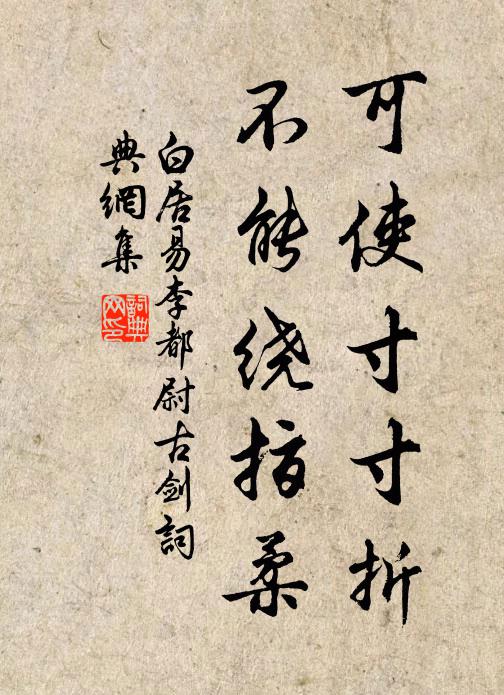 可使寸寸折
不能绕指柔
白居易李都尉古剑詞
典網集
詞典
网印